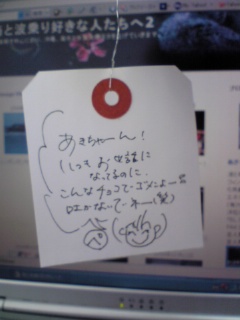 と波乗り好きな人たちへ2
あきちゃーん！
いつもお世話に
なってるのに、
こんなチョコでゴメンよー
吐かないでネー(笑)